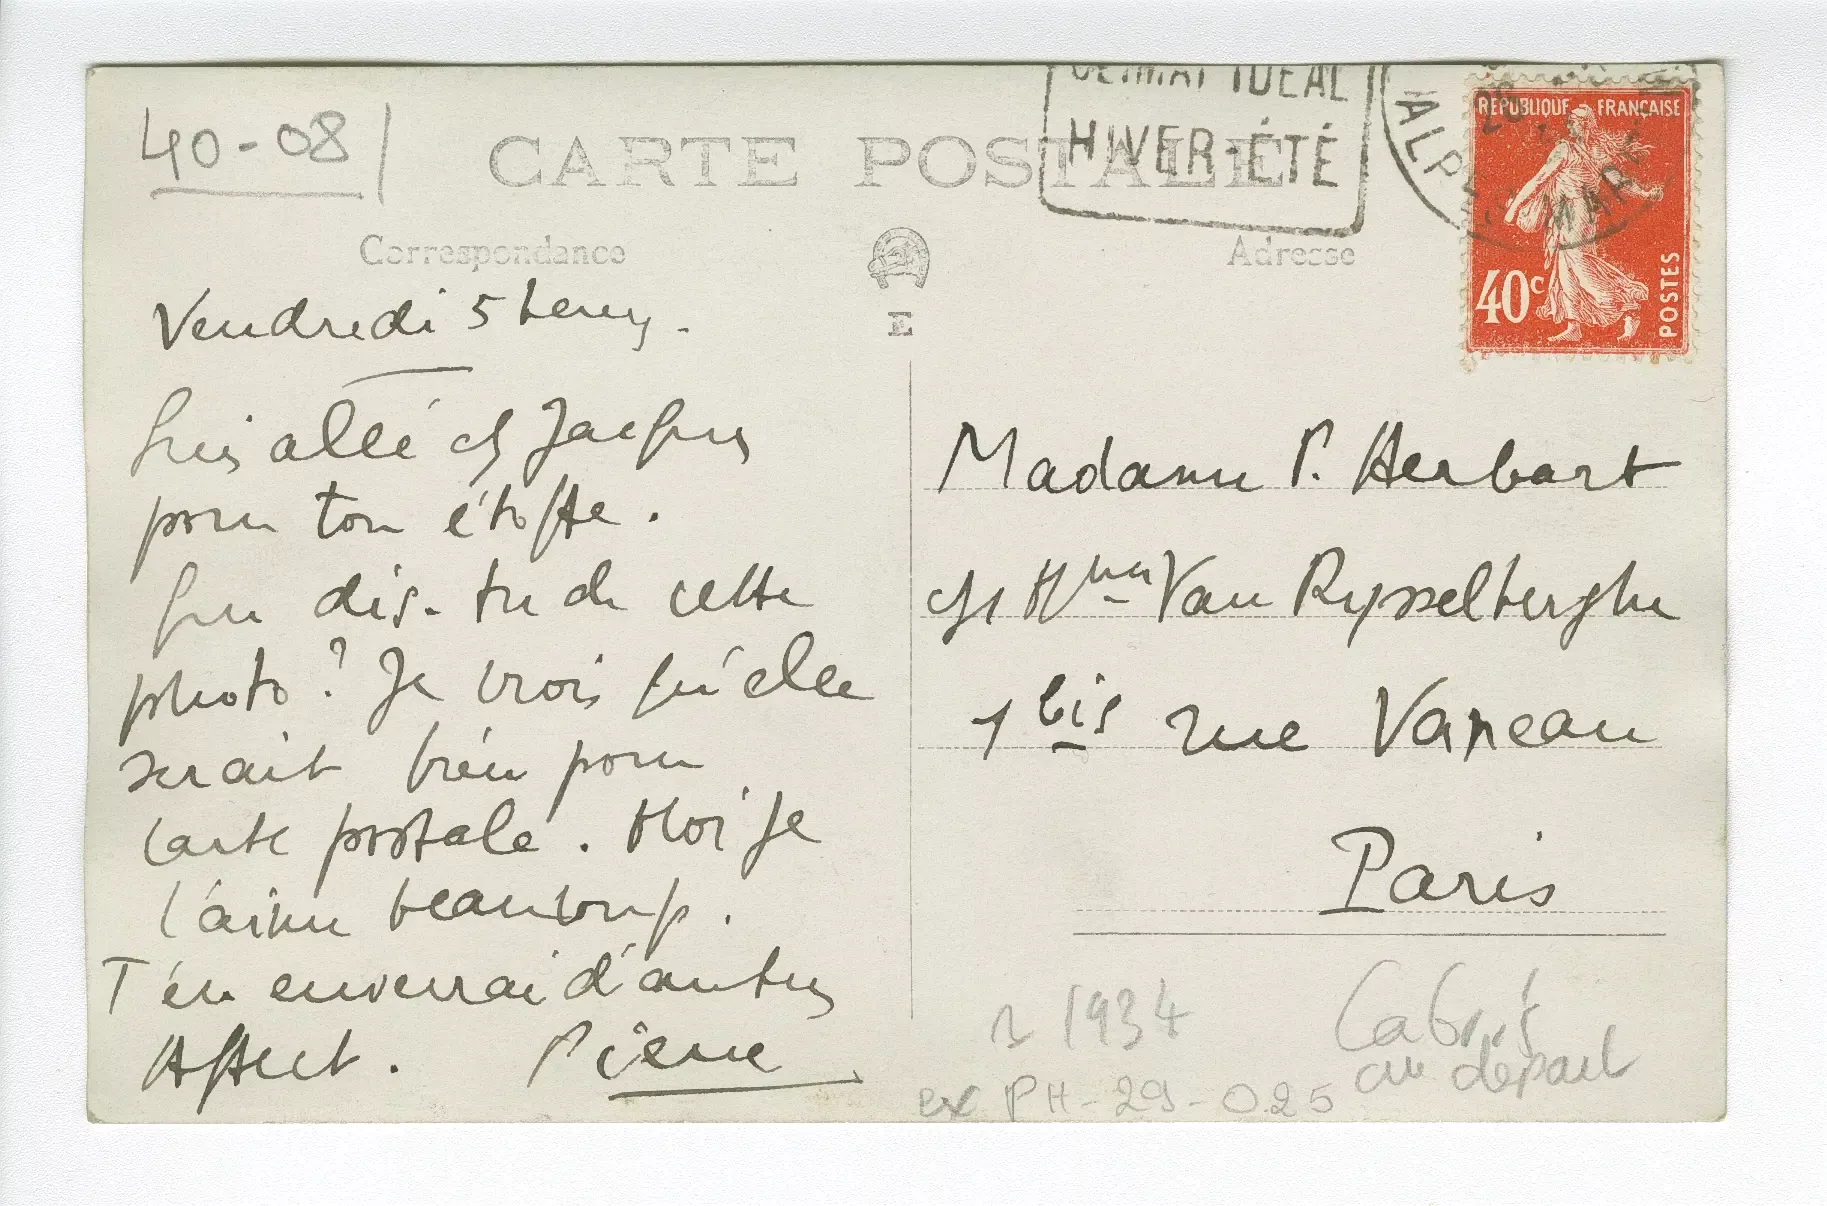 40-08
CARTE POSTALE
CLIMAT IDEAL
HIVER-ÉTÉ
ALP MAR
REPUBLIQUE FRANÇAISE
40c
POSTES
Correspondance
Adresse
E
Vendredi 5 heures.
Suis allé ch Jacques
pour ton étoffe.
Que dis-tu de cette
photo? Je crois qu'elle
serait bien pour
carte postale. Moi je
l'aime beaucoup.
T'en enverrai d'autres
Affect. Pierre
Madame P. Herbart
ch Mme Van Rysselberghe
1bis rue Vaneau
Paris
1934
Cabris
au départ
ex PH-29-025